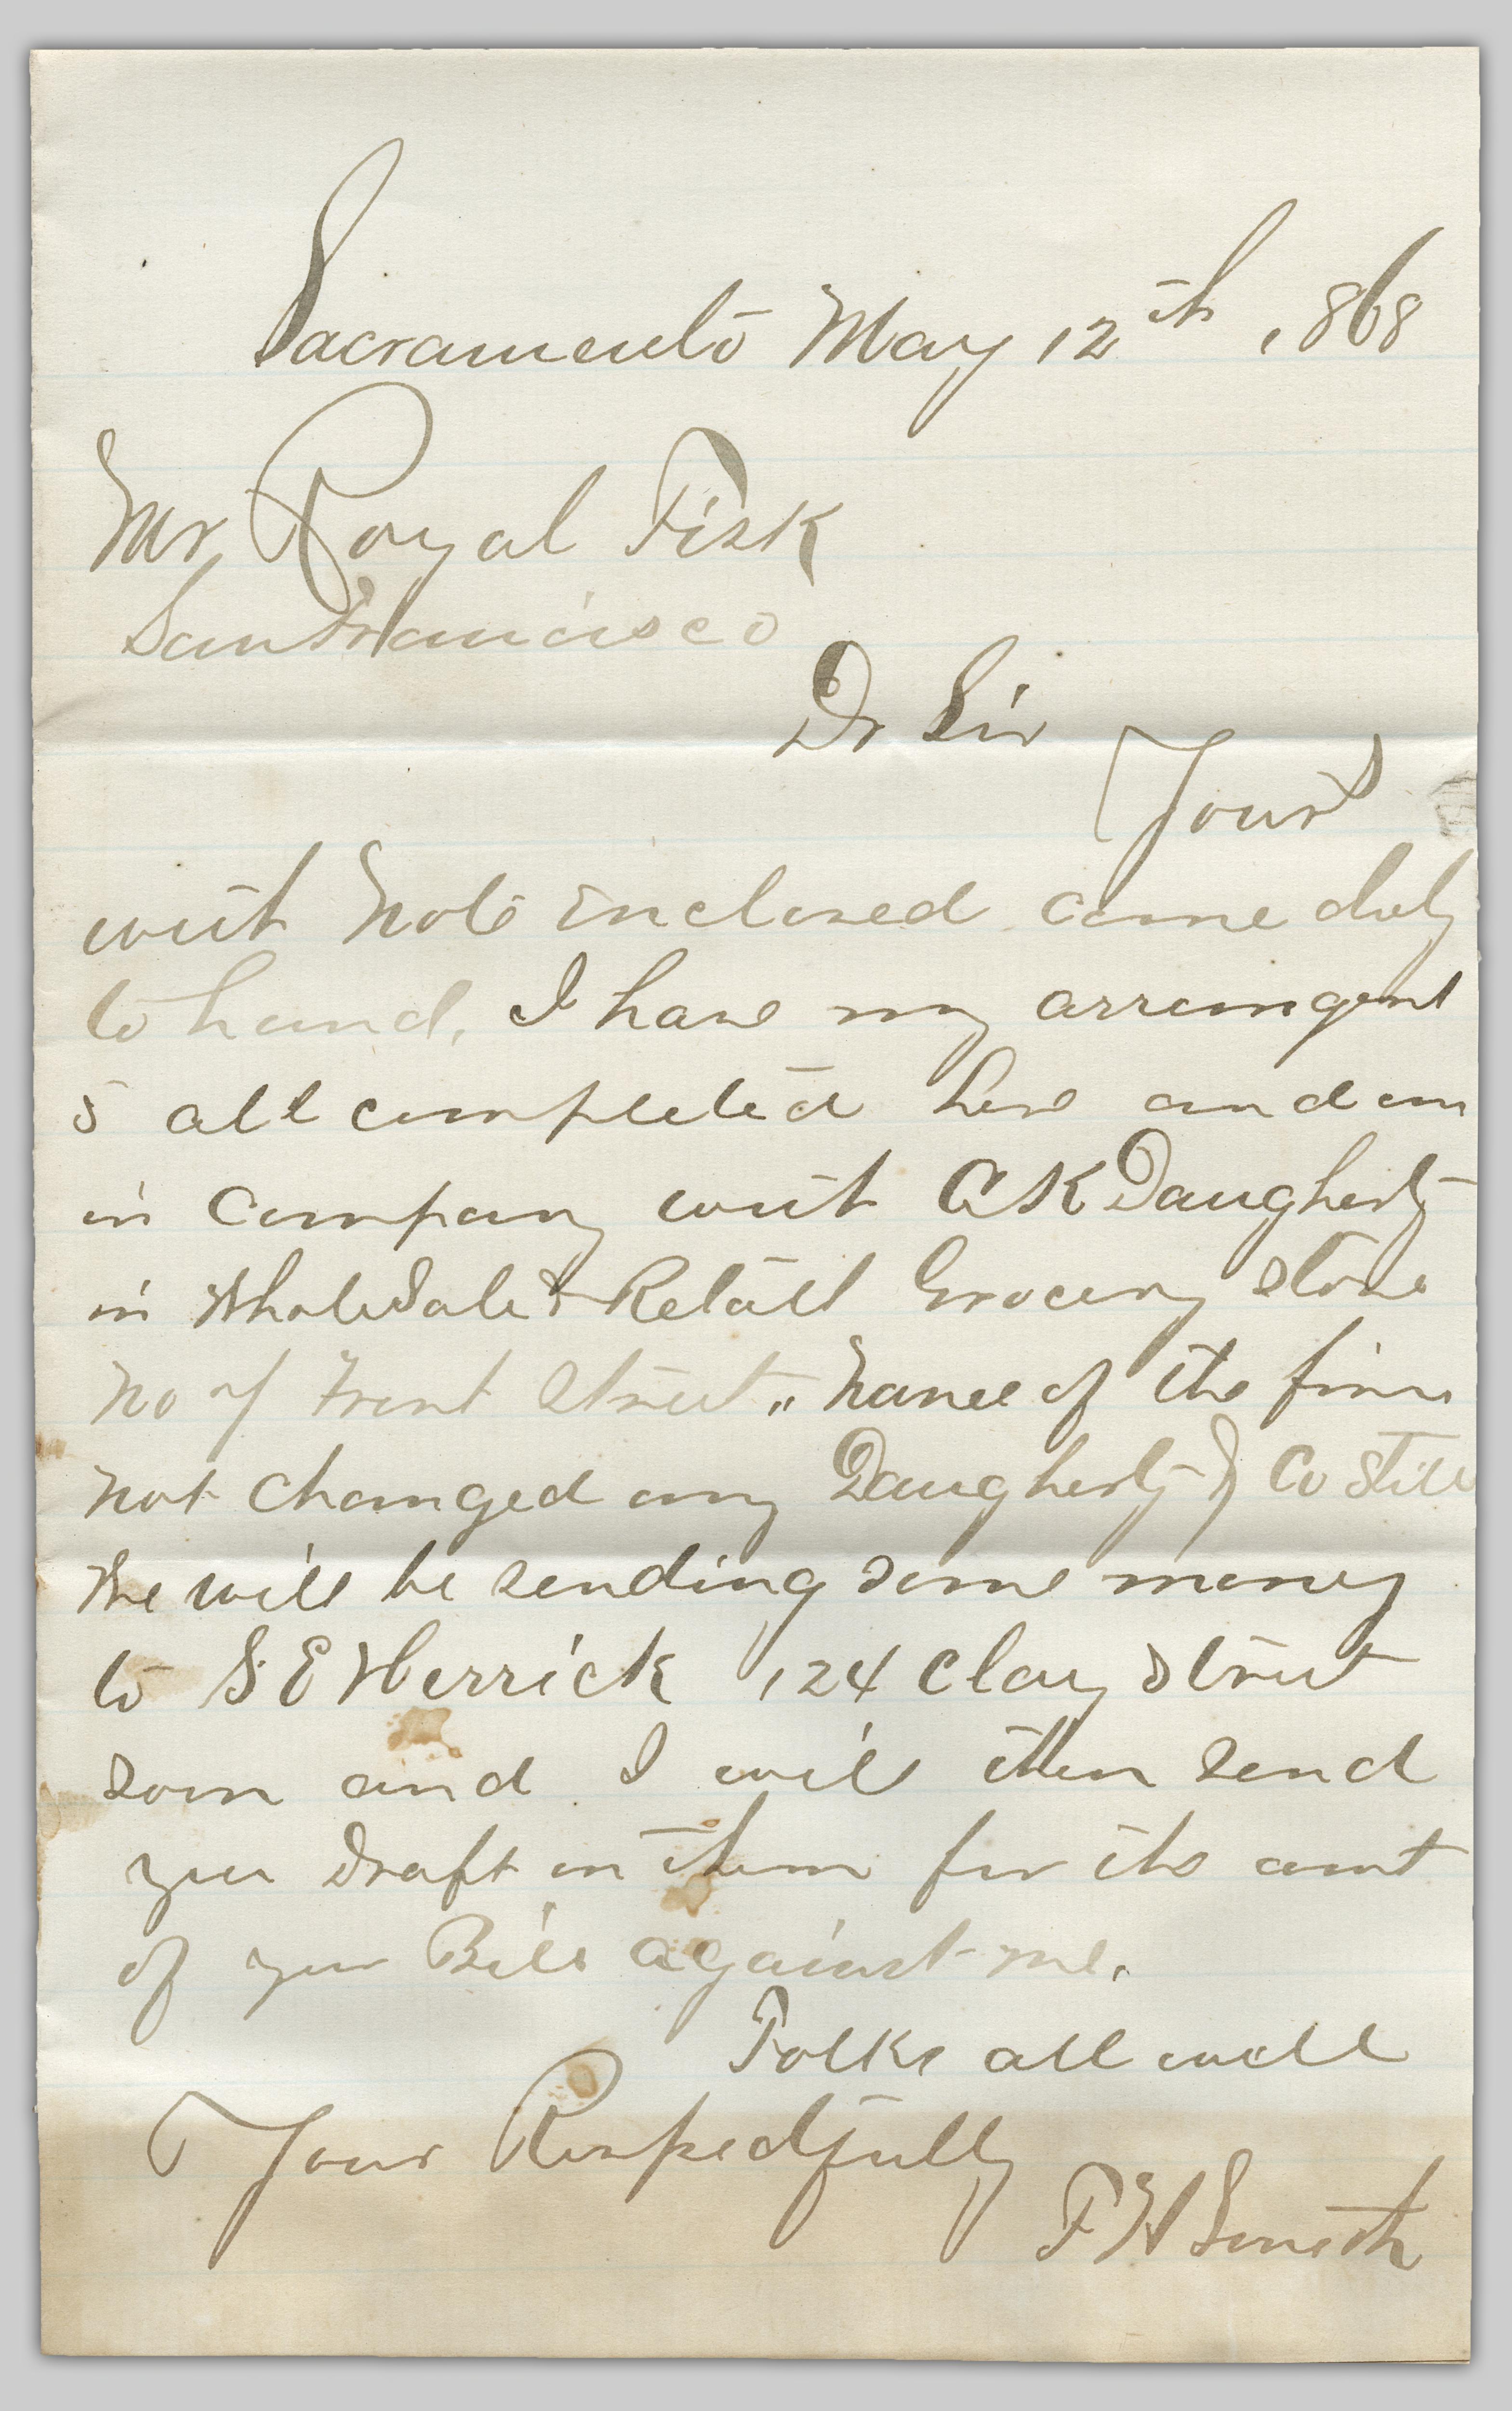 Sacramento May 12th 1868
Mr Royal Fisk
San Francisco
Dr Sir
Yours
with Note Enclosed came duly
to hand, I have my arrangent
s all completed here and am
in company with C K Daugherty
in Wholesale & Retail Grocery Store
No 7 Front Street " Name of the firm
not changed any Daugherty & Co Still
We will be sending some money
to S E Herrick 124 Clay Street
soon and I will then send
you draft on them for the amt
of your Bill against me.
Folks all well
Your Respectfully
F H Smith